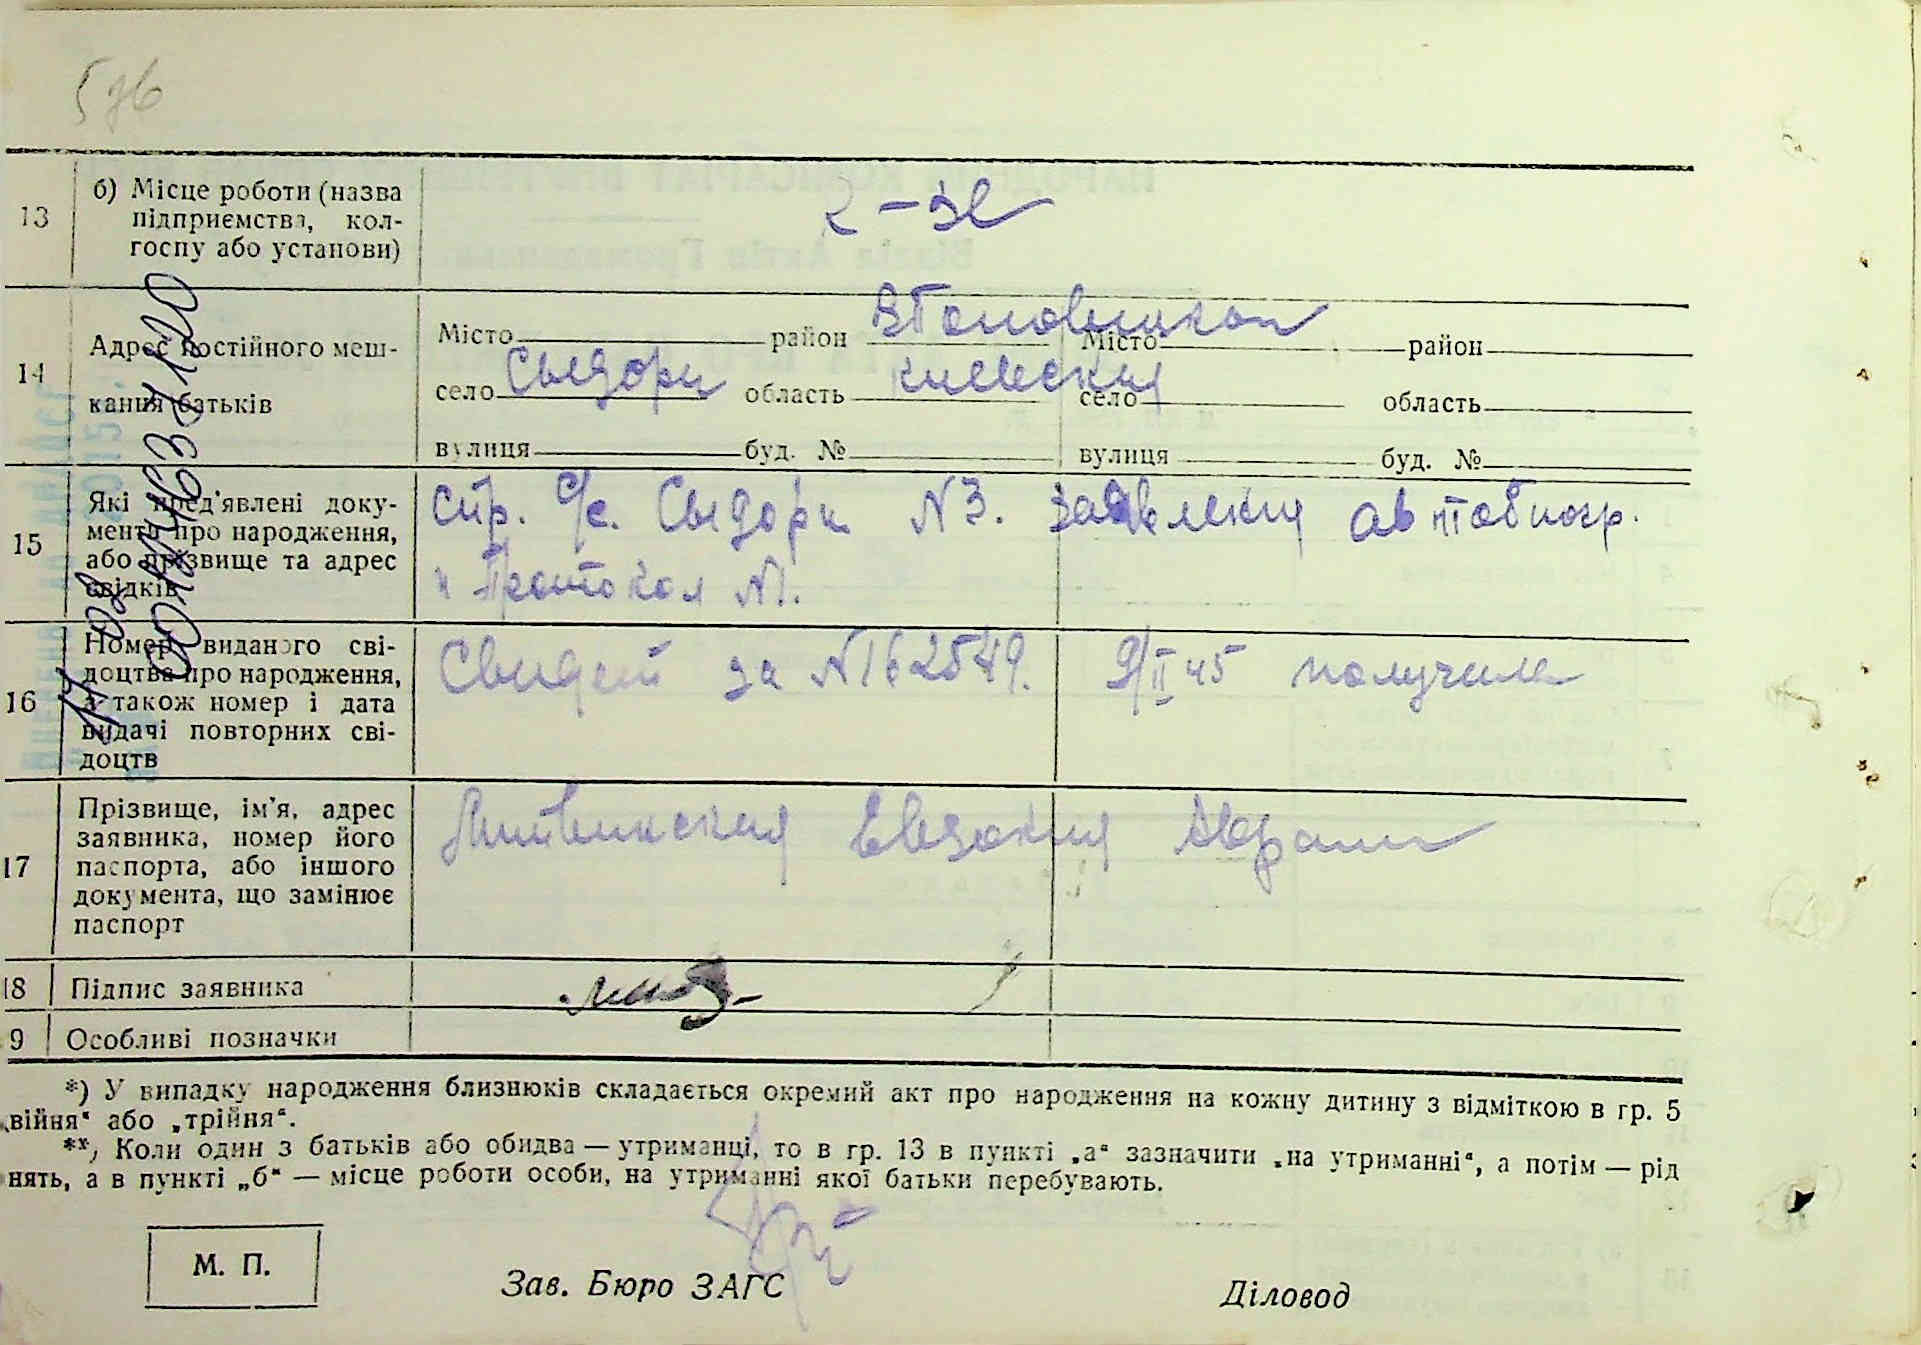 13 б) Місце роботи (назва
підприємства, кол-
госпу або установи)
14 Адрес постійного меш-
кання батьків
Місто район Місто район
село Сыдори область киевская село область
вулиця буд. № вулиця буд. №
15 Які пред'явлені доку-
менти про народження,
або прізвище та адрес
свідків
спр. с/с. Сыдори N 3. Заявления автобиогр.
и Протокол N1.
16 Номер виданого сві-
доцтва про народження,
а також номер і дата
видачі повторних сві-
доцтв
Свидет за N 162549. 9/II 45 получила
17 Прізвище, ім'я, адрес
заявника, номер його
паспорта, або іншого
документа, що замінює
паспорт
Литвинская Евдокия Аврам
18 Підпис заявника
9 Особливі позначки
*) У випадку народження близнюків складається окремий акт про народження на кожну дитину з відміткою в гр. 5
війня" або „трійня".
**) Коли один з батьків або обидва — утриманці, то в гр. 13 в пункті „а" зазначити „на утриманні", а потім — рід
нять, а в пункті „б" — місце роботи особи, на утриманні якої батьки перебувають.
М. П.
Зав. Бюро ЗАГС Діловод